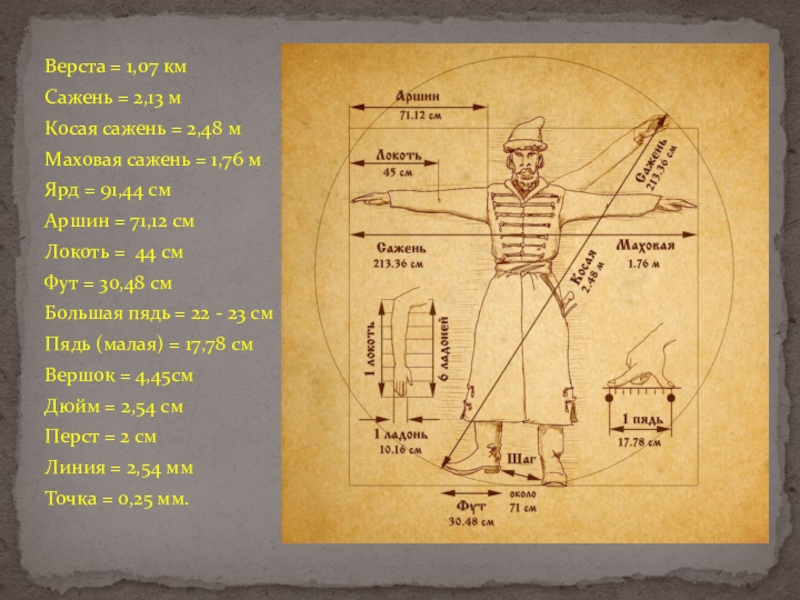 Верста = 1,07 км
Сажень = 2,13 м
Косая сажень = 2,48 м
Маховая сажень = 1,76 м
Ярд = 91,44 см
Аршин = 71,12 см
Локоть =  44 см
Фут = 30,48 см
Большая пядь = 22 - 23 см
Пядь (малая) = 17,78 см
Вершок = 4,45см
Дюйм = 2,54 см
Перст = 2 см
Линия = 2,54 мм
Точка = 0,25 мм.
Аршин
71.12 см
Локоть
45 см
Сажень
213.36 см
Сажень
213.36 см
Маховая
1.76 м
Косая
2.48 м
1 локоть
6 ладоней
1 ладонь
10.16 см
1 пядь
17.78 см
Шаг
около
71 см
Фут
30.48 см